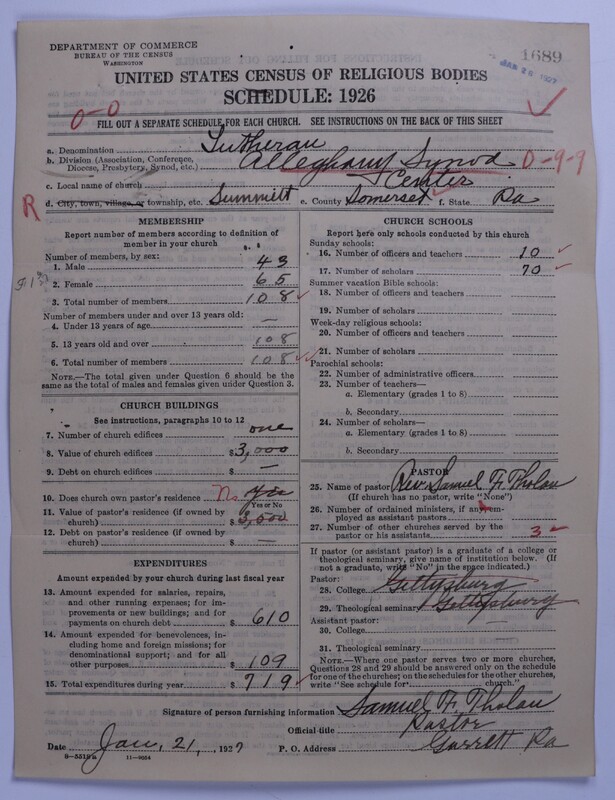 DEPARTMENT OF COMMERCE
BUREAU OF THE CENSUS
WASHINGTON
1689
JAN 1927
UNITED STATES CENSUS OF RELIGIOUS BODIES
SCHEDULE: 1926
0-0
FILL OUT A SEPARATE SCHEDULE FOR EACH CHURCH. SEE INSTRUCTIONS ON THE BACK OF THIS SHEET
a. Denomination Lutheran
b. Division (Association, Conference, Diocese, Presbytery, Synod, etc.) Alleghany Synod D-9-9
c. Local name of church Center
R d. City, town, village or township, etc. Summitt e. County Somerset f. State Pa
MEMBERSHIP
Report number of members according to definition of
member in your church
Number of members, by sex:
1. Male 43
2. Female 65
3. Total number of members 108
Number of members under and over 13 years old:
4. Under 13 years of age —
5. 13 years old and over 108
6. Total number of members 108
NOTE.—The total given under Question 6 should be the
same as the total of males and females given under Question 3.
CHURCH BUILDINGS
See instructions, paragraphs 10 to 12
7. Number of church edifices one
8. Value of church edifices $3,000
9. Debt on church edifices $ —
10. Does church own pastor's residence No Yes
Yes or No
11. Value of pastor's residence (if owned by
church) $3,500
12. Debt on pastor's residence (if owned by
church) $ —
EXPENDITURES
Amount expended by your church during last fiscal year
13. Amount expended for salaries, repairs,
and other running expenses; for im-
provements or new buildings; and for
payments on church debt $ 610
14. Amount expended for benevolences, in-
cluding home and foreign missions; for
denominational support; and for all
other purposes $ 109
15. Total expenditures during year $ 719
CHURCH SCHOOLS
Report here only schools conducted by this church
Sunday schools:
16. Number of officers and teachers 10
17. Number of scholars 70
Summer vacation Bible schools:
18. Number of officers and teachers
19. Number of scholars
Week-day religious schools:
20. Number of officers and teachers
21. Number of scholars
Parochial schools:
22. Number of administrative officers
23. Number of teachers—
a. Elementary (grades 1 to 8)
b. Secondary
24. Number of scholars—
a. Elementary (grades 1 to 8)
b. Secondary
PASTOR
25. Name of pastor Rev. Samuel F. Tholan
(If church has no pastor, write "None")
26. Number of ordained ministers, if any, em-
ployed as assistant pastors
27. Number of other churches served by the
pastor or his assistants 3
If pastor (or assistant pastor) is a graduate of a college or
theological seminary, give name of institution below. (If
not a graduate, write "No" in the space indicated.)
Pastor:
28. College Gettysburg
29. Theological seminary Gettysburg
Assistant pastor:
30. College —
31. Theological seminary
NOTE.—Where one pastor serves two or more churches,
Questions 28 and 29 should be answered only on the schedule
for one of the churches; on the schedules for the other churches,
write "See schedule for church."
Signature of person furnishing information Samuel F. Tholan
Official title Pastor
Date Jan. 21, 1927 P. O. Address Garrett Pa
11-9054